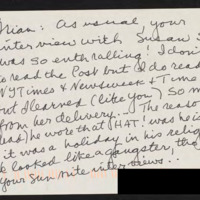 Brian: As usual, your
interview with Susan S
was so enthralling! I don't
read the Post but I do read
NYTimes & Newsweek & Time
but I learned (like you) so m
from her delivery... The reason
he wore that HAT! was he is
it was a holiday in his relig
he looked like a gangster, tha
Your Sun nite interviews..